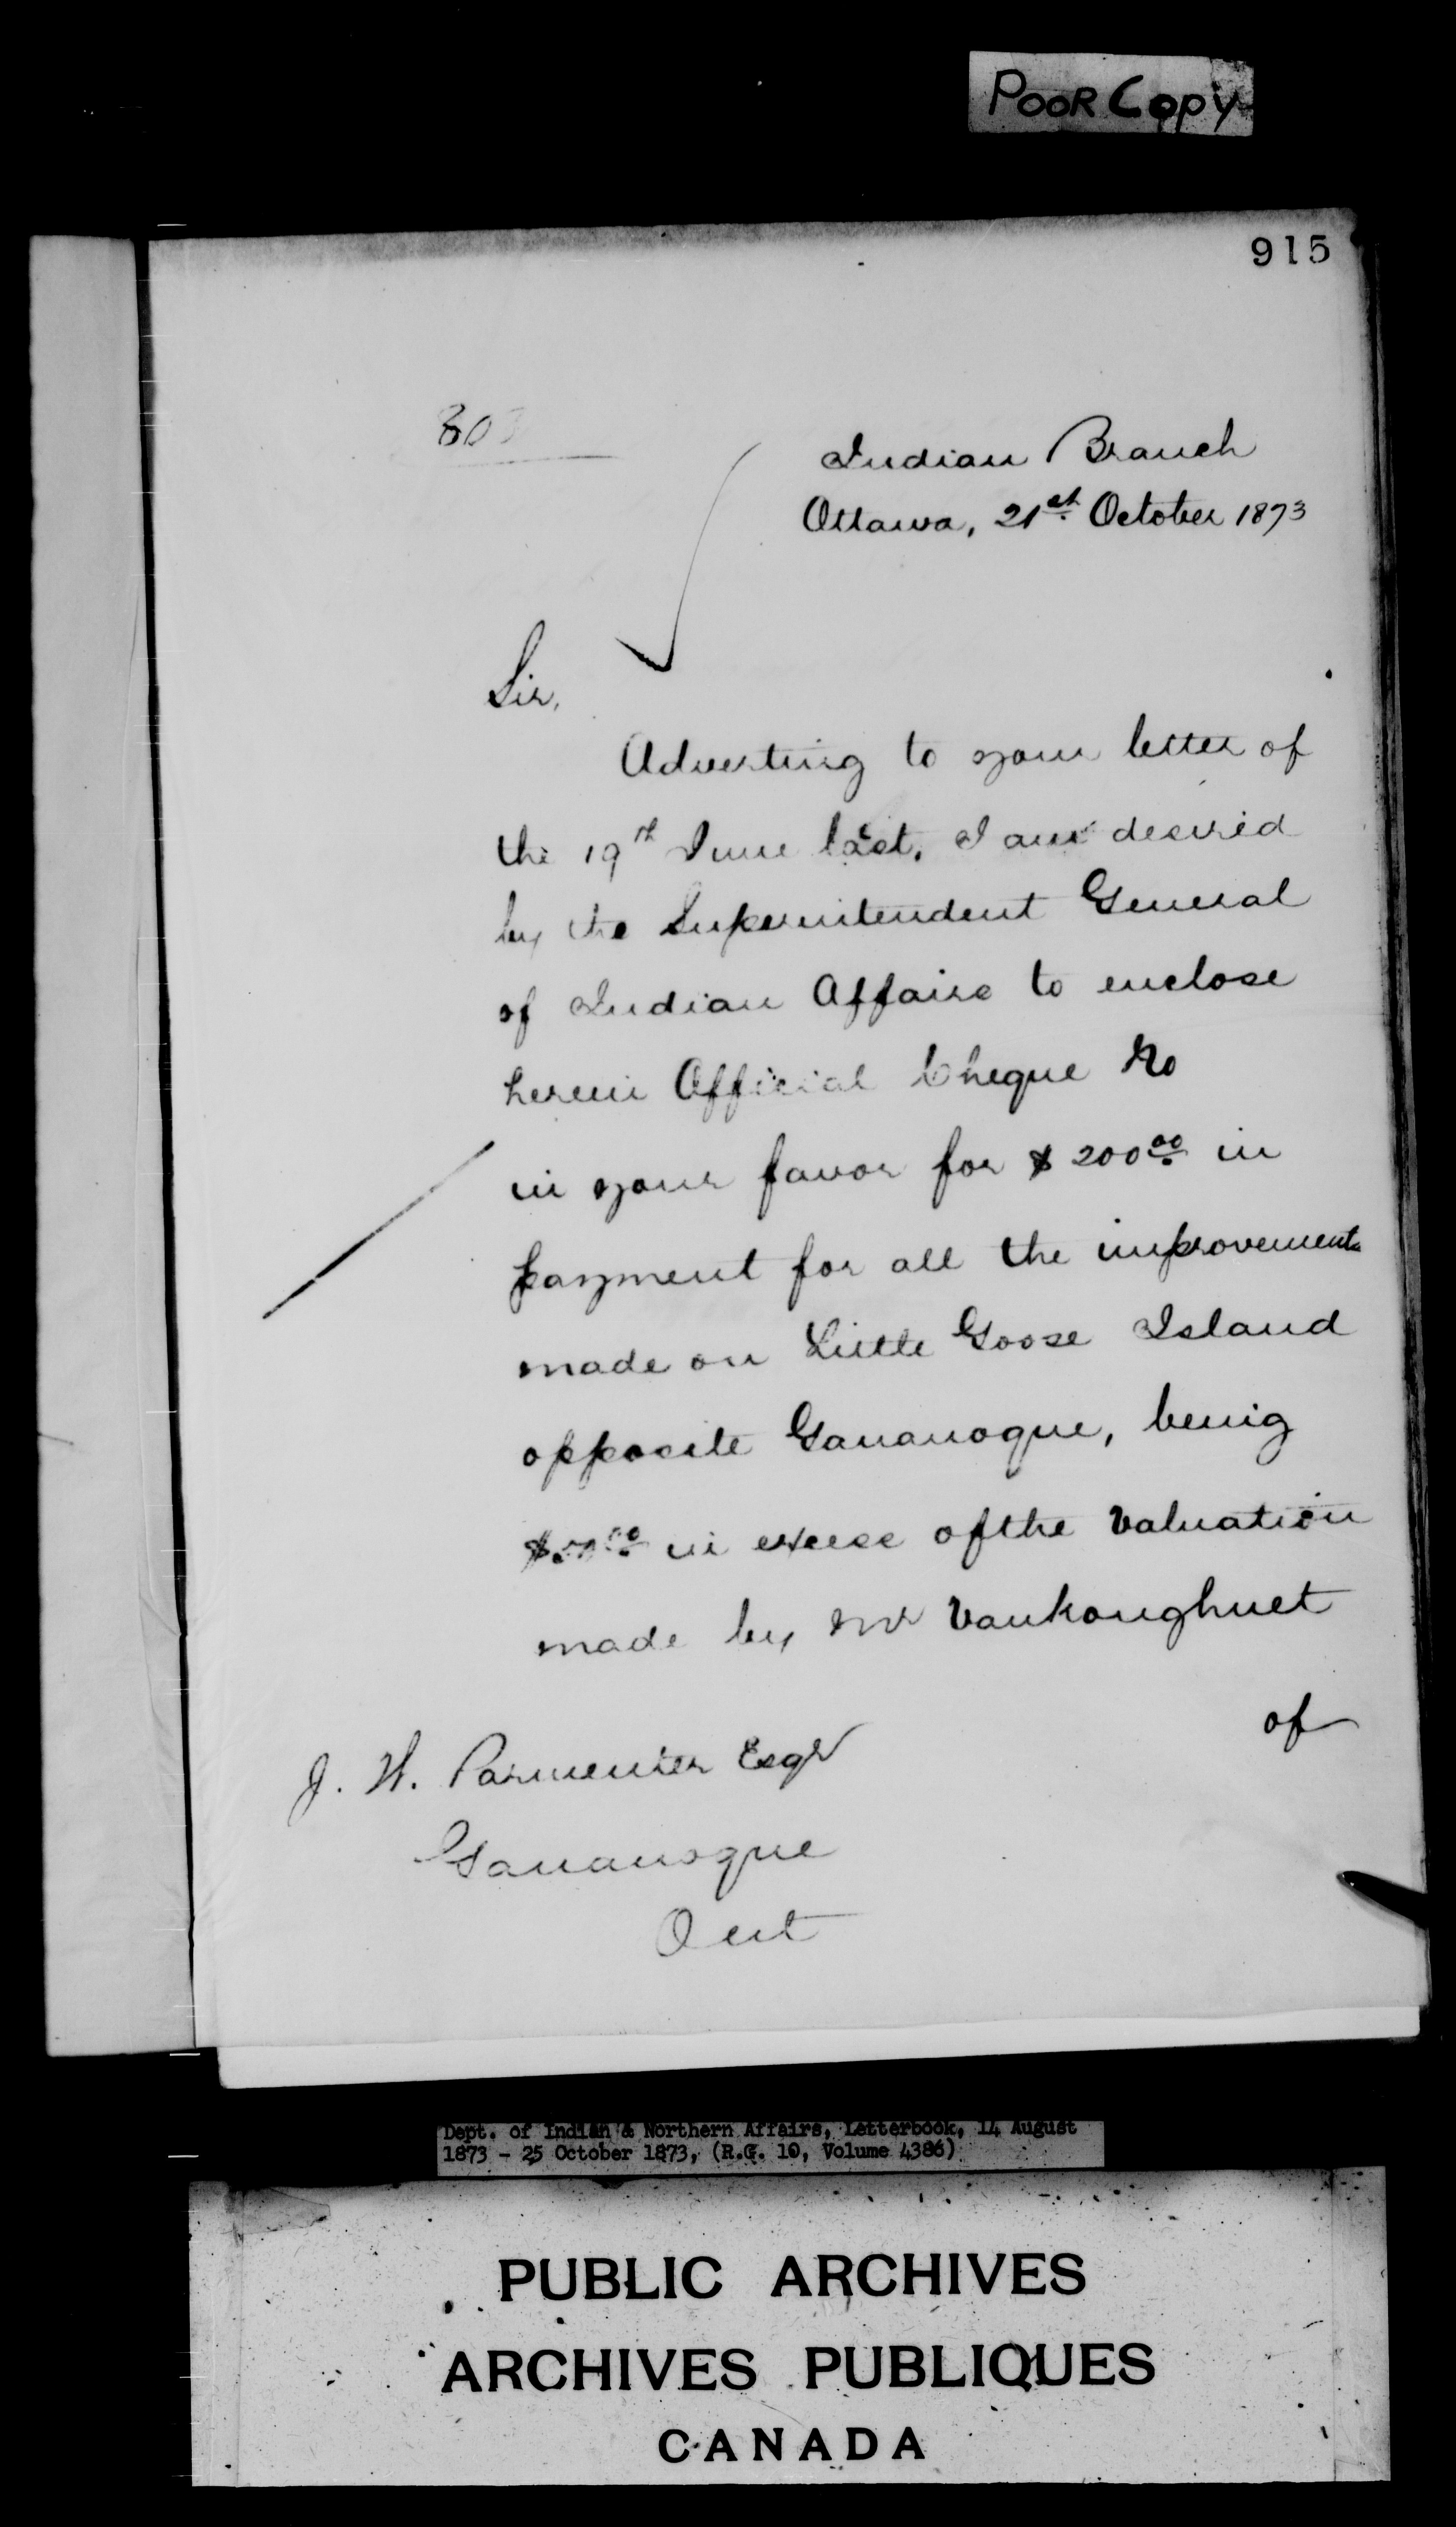 POOR Copy
915
Indian Branch
Ottawa, 21st October 1873
Sir,
Adverting to your letter of
the 19th June last, I am desired
by the Superintendent General
of Indian Affairs to enclose
herein Official Cheque No
in your favor for $200.00 in
payment for all the improvements
made on Little Goose Island
opposite Gananoque, being
in excess of the valuation
made by Mr Vankoughnet
of
J. W. Parmenter Esqr
Gananoque
Ont
Dept. of Indian & Northern Affairs, Letterbook, 14 August
1873 - 25 October 1873, (R.G. 10, Volume 4386)
PUBLIC ARCHIVES
ARCHIVES PUBLIQUES
CANADA